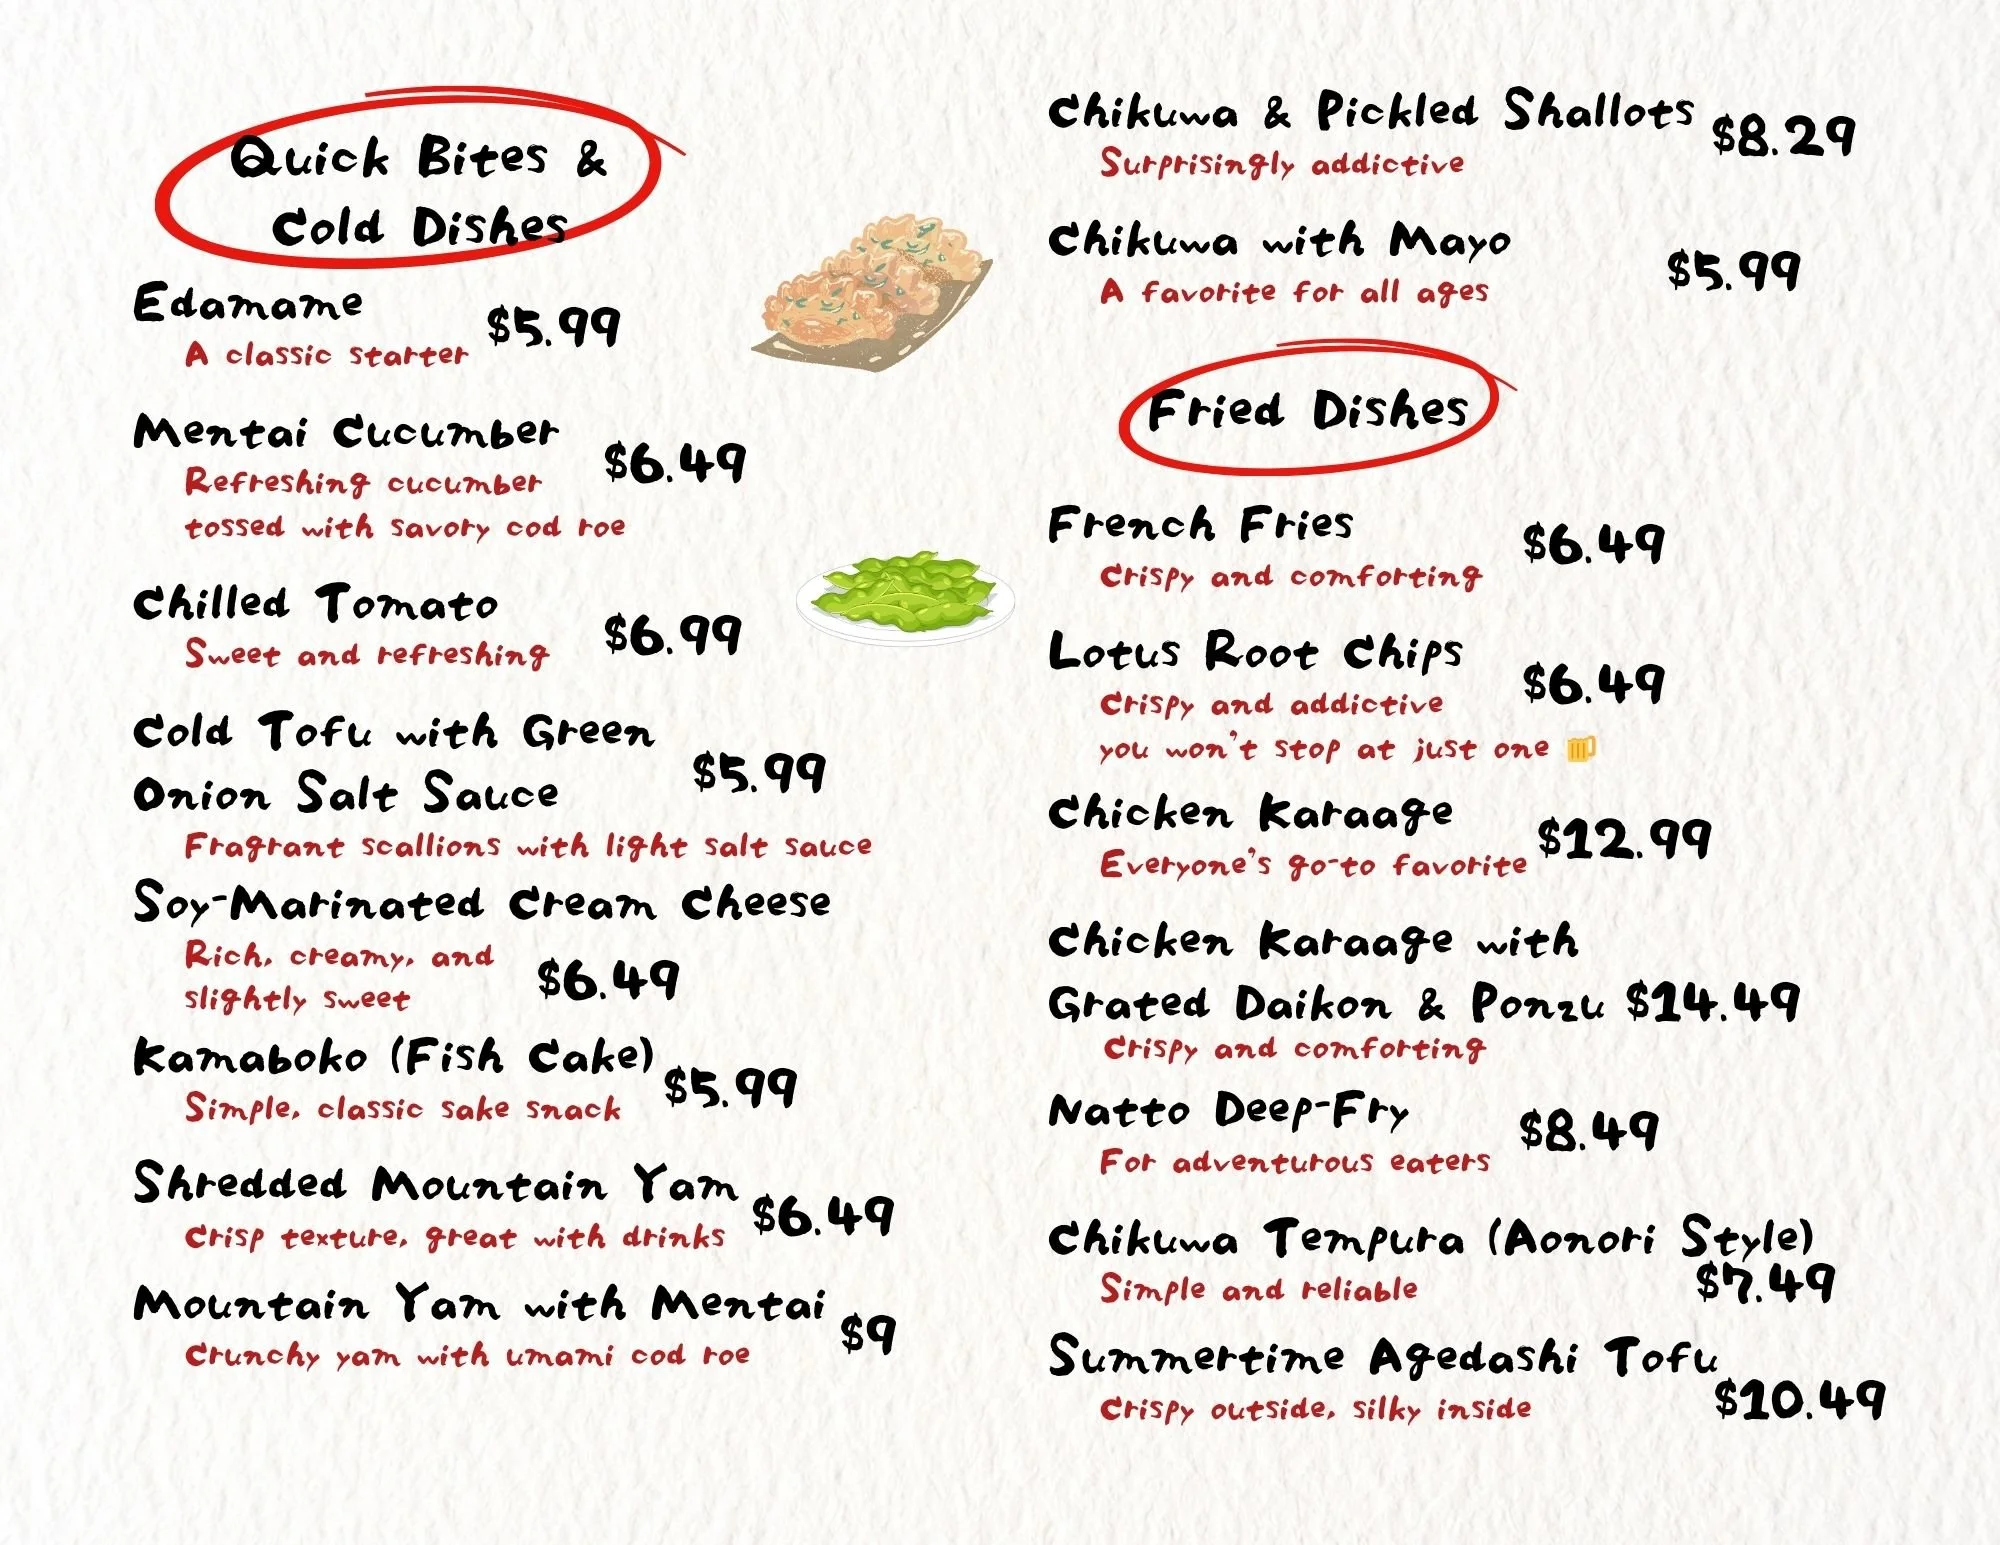 Quick Bites &
Cold Dishes
Edamame
$5.99
A classic starter
Mentai Cucumber
$6.49
Refreshing cucumber
tossed with savory cod roe
Chilled Tomato
$6.99
Sweet and refreshing
Cold Tofu with Green
Onion Salt Sauce
$5.99
Fragrant scallions with light salt sauce
Soy-Marinated Cream Cheese
Rich, creamy, and
slightly sweet
$6.49
Kamaboko (Fish Cake)
$5.99
Simple, classic sake snack
Shredded Mountain Yam
$6.49
Crisp texture, great with drinks
Mountain Yam with Mentai
$9
Crunchy yam with umami cod roe
Chikuwa & Pickled Shallots
$8.29
Surprisingly addictive
Chikuwa with Mayo
$5.99
A favorite for all ages
Fried Dishes
French Fries
$6.49
Crispy and comforting
Lotus Root Chips
$6.49
Crispy and addictive
you won't stop at just one 🍺
Chicken Karaage
$12.99
Everyone's go-to favorite
Chicken Karaage with
Grated Daikon & Ponzu $14.49
Crispy and comforting
Natto Deep-Fry
$8.49
For adventurous eaters
Chikuwa Tempura (Aonori Style)
$7.49
Simple and reliable
Summertime Agedashi Tofu
$10.49
Crispy outside, silky inside